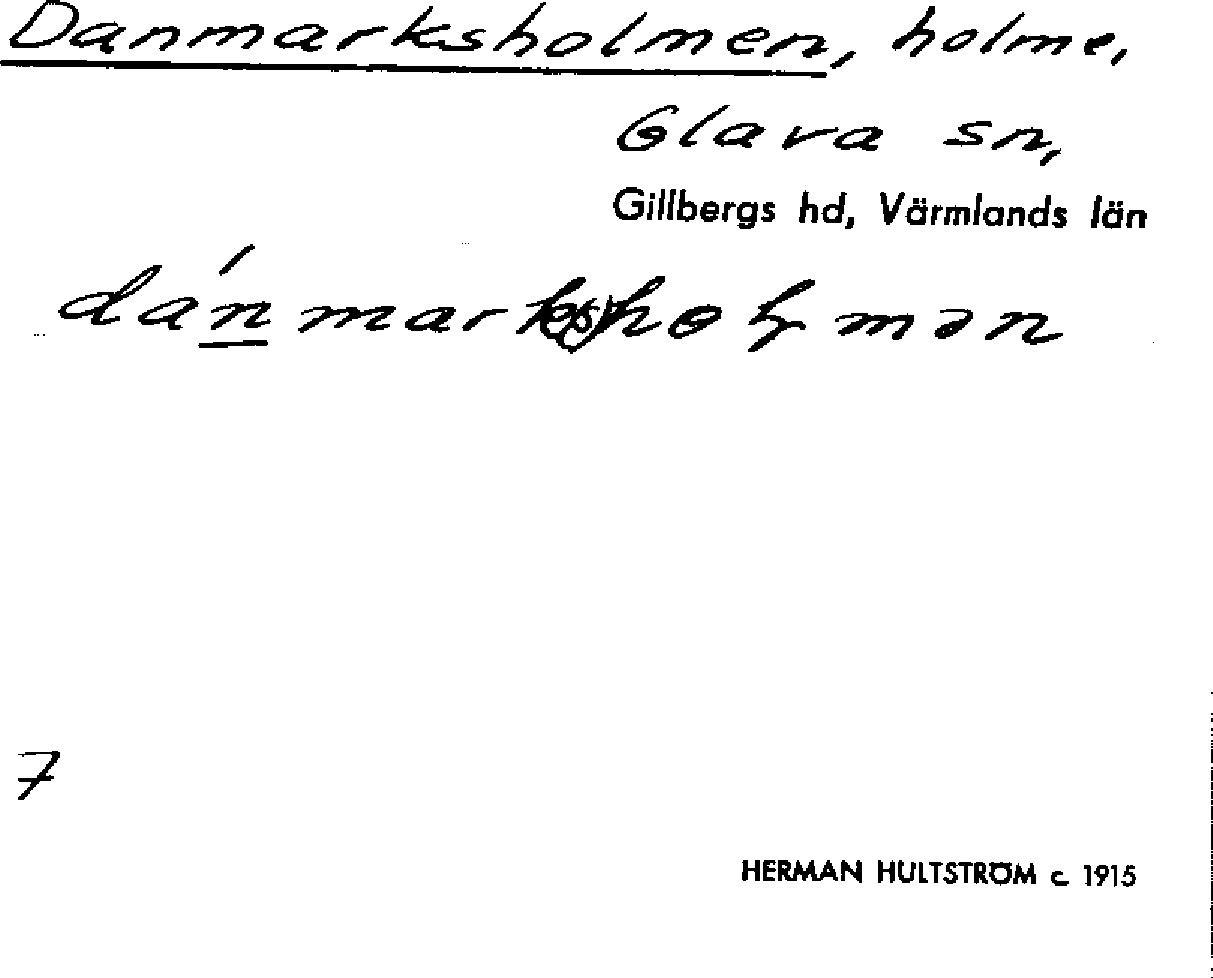 Danmarksholmen, holme,
Glava sn,
Gillbergs hd, Värmlands län
7
HERMAN HULTSTRÖM c 1915